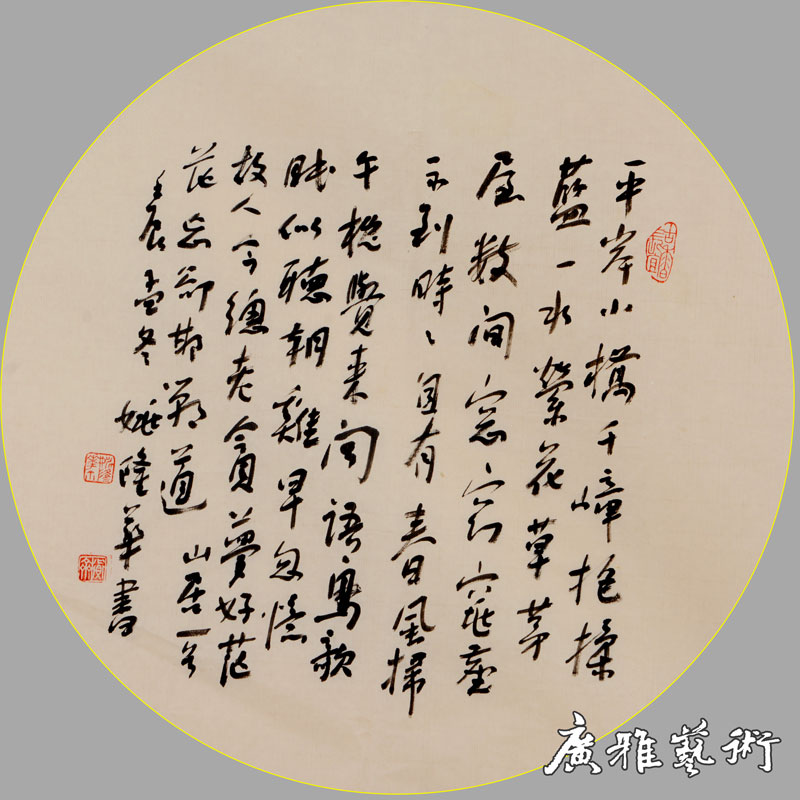 平岸小橋千嶂抱揉
藍一水縈花草茅
屋數间窓窈窕塵
不到時々自有春風掃
午枕覺来闻語鳥欹
眠似聽朝雞早忽憶
故人今總老貪夢好茫
茫忘却邯鄲道 山居一
壬辰孟冬姚隆華書
廣雅藝術